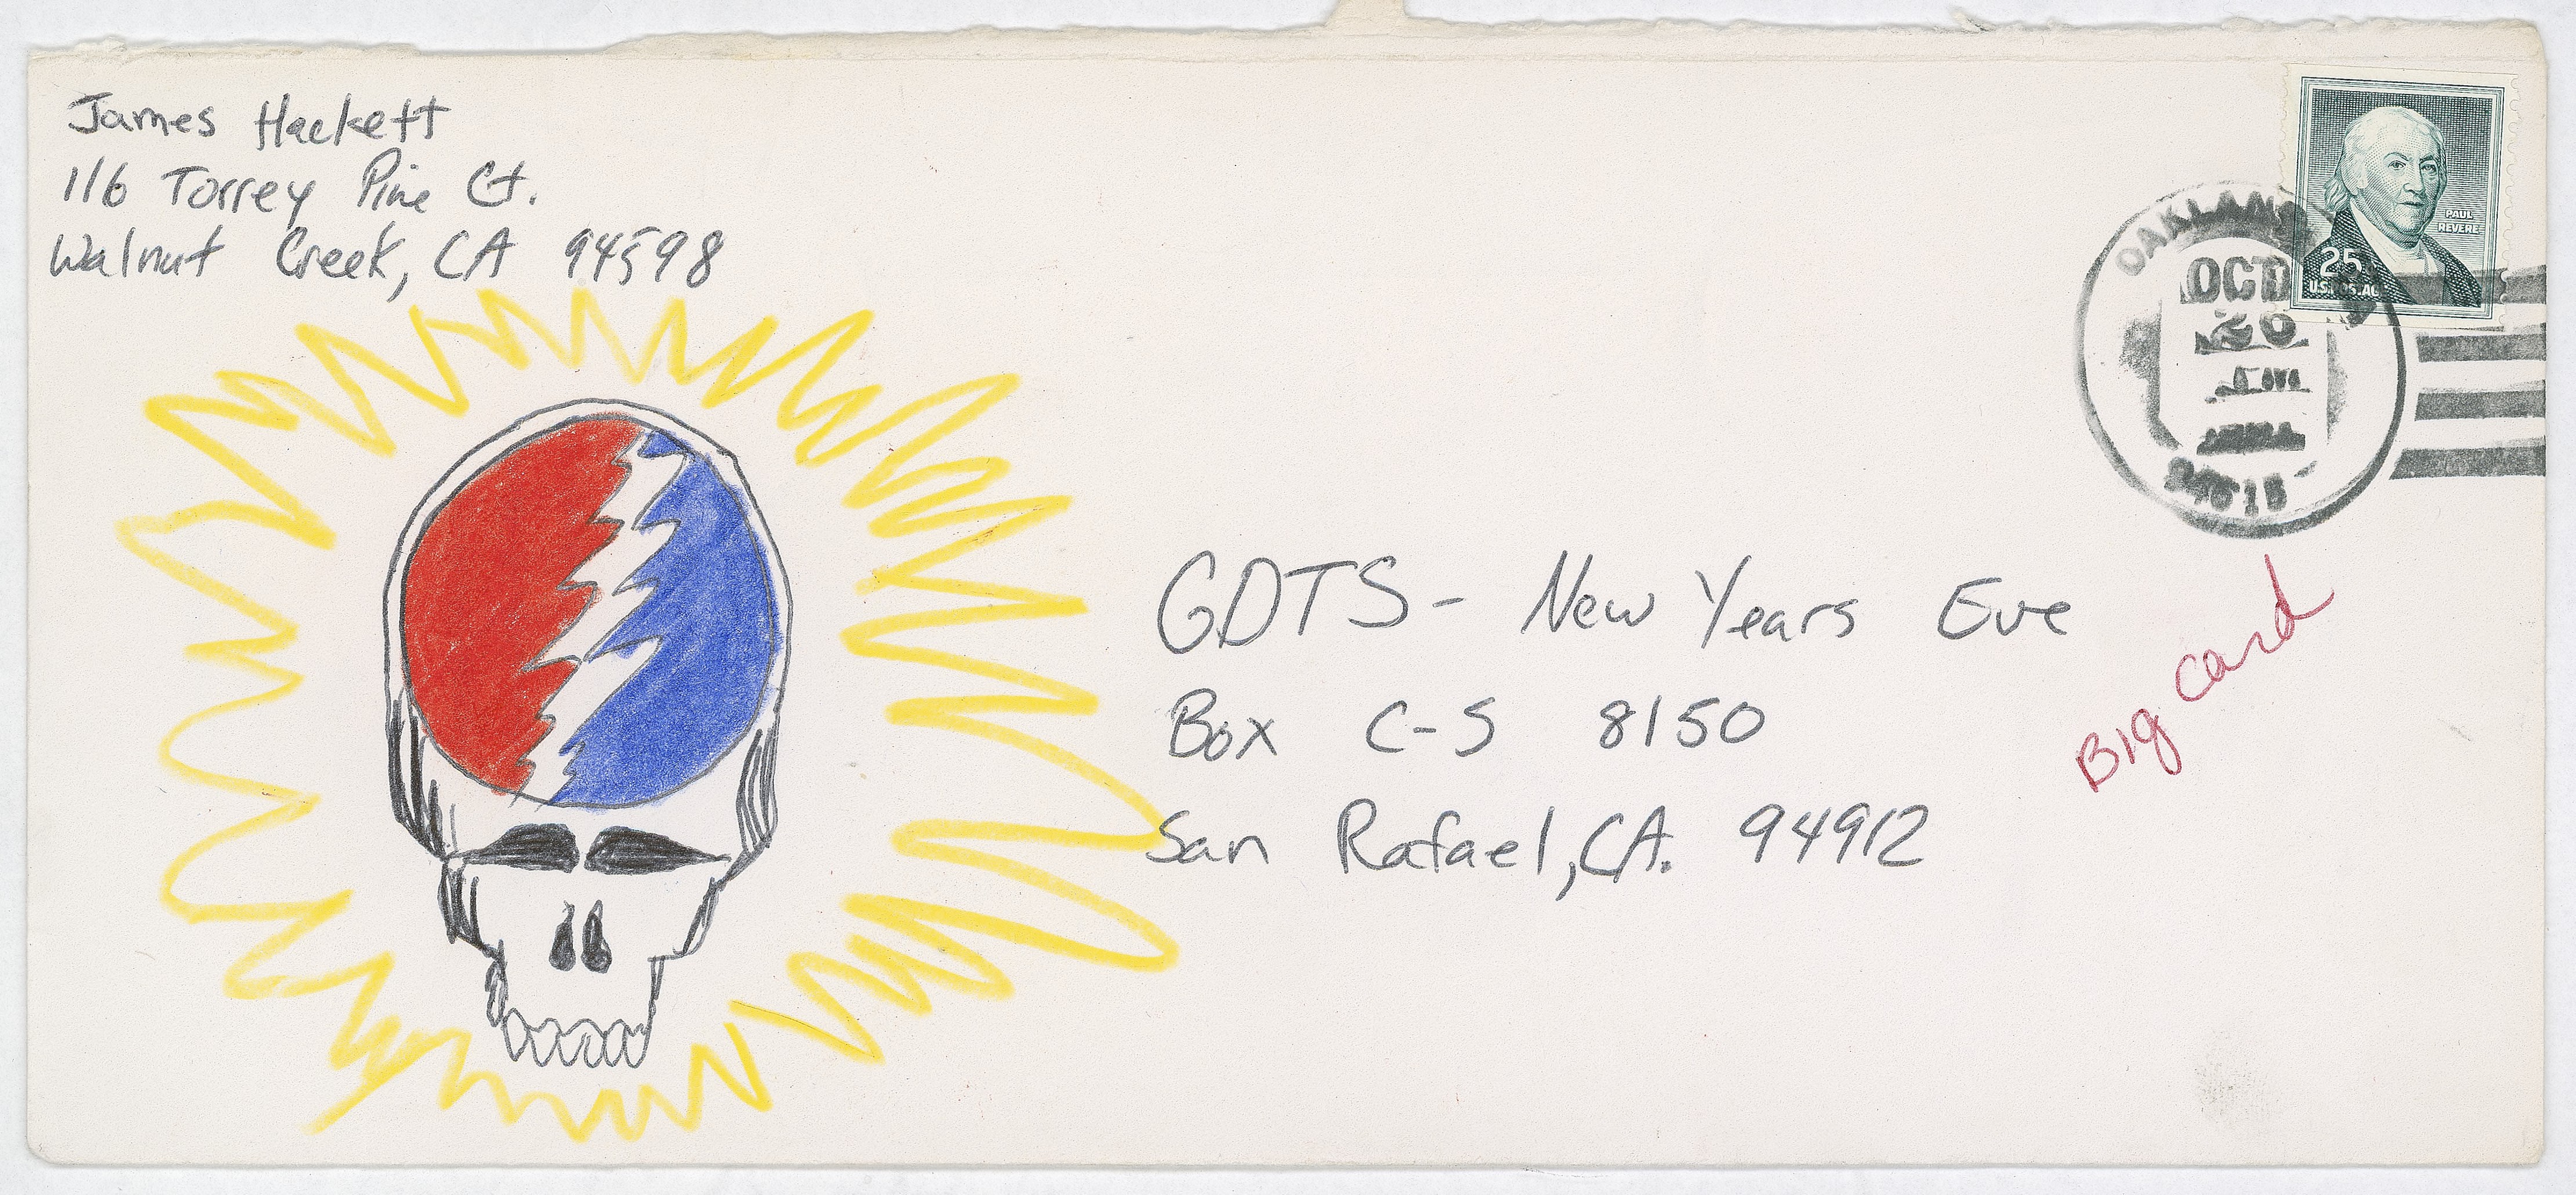 James Hackett
116 Torrey Pine Ct.
Walnut Creek, CA 94598
PAUL
REVERE
25
U.S. POSTAGE
OAKLAND
OCT
20
GDTS- New Years Eve
Box C-S 8150
San Rafael, CA. 94912
Big card